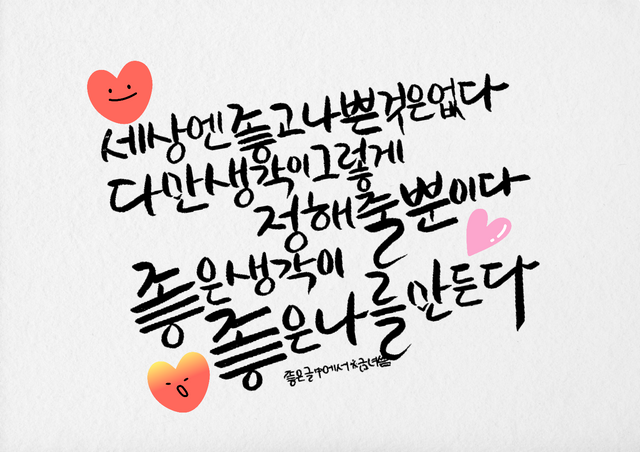 세상엔 좋고 나쁜 것은 없다
다만 생각이 그렇게
정해줄 뿐이다
좋은 생각이
좋은 나를 만든다
좋은글中에서